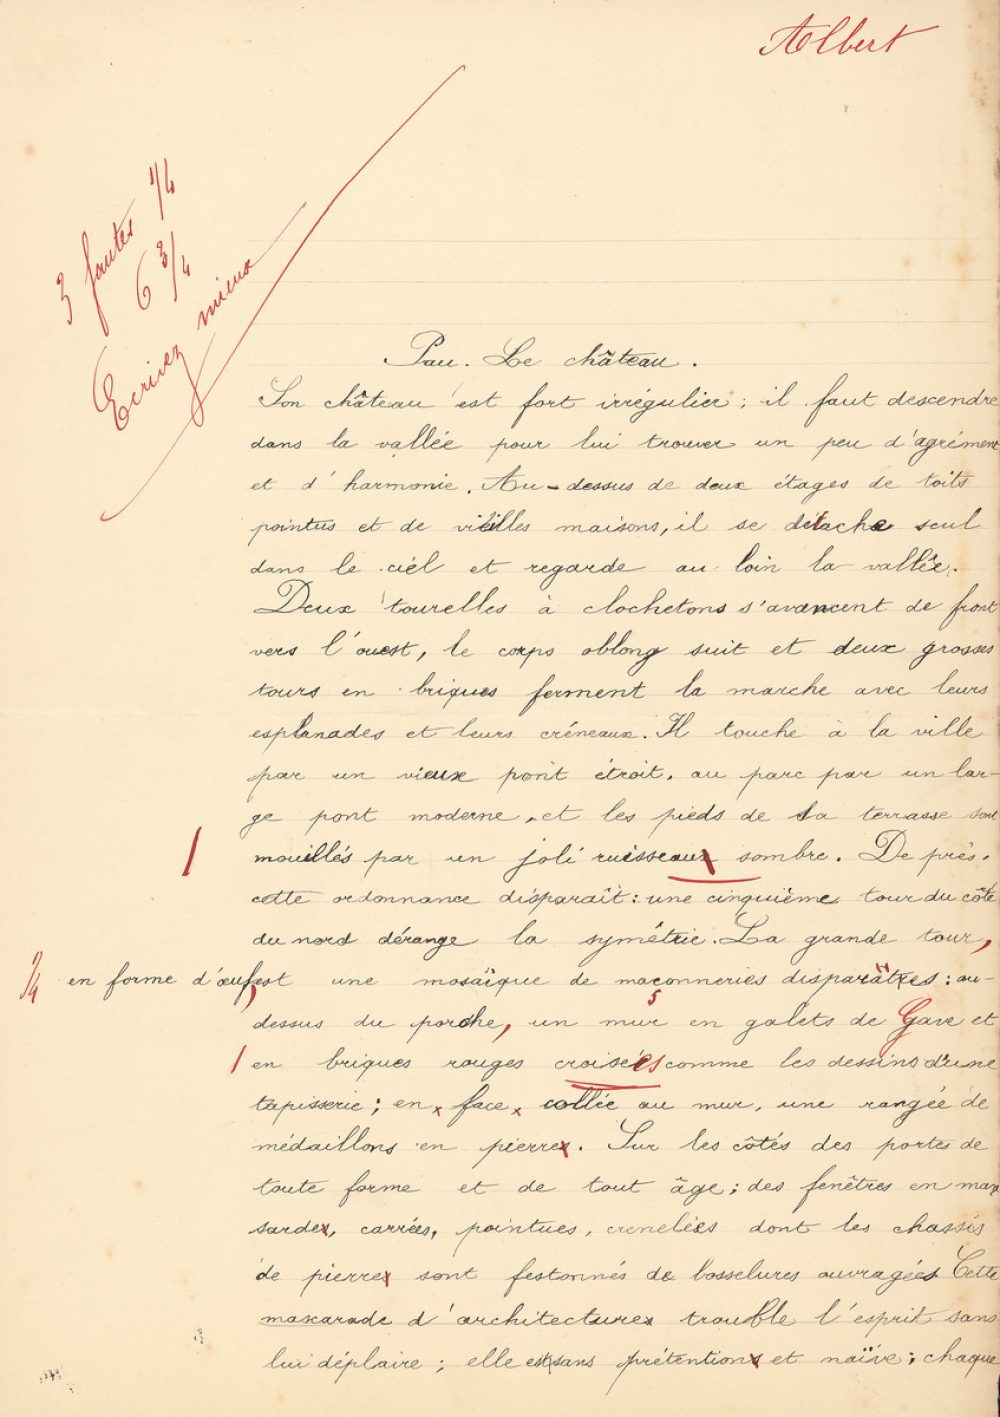 Albert
3 fautes 1/4
6 3/4
Ecrivez mieux
Pau. Le château.
Son château est fort irrégulier ; il faut descendre
dans la vallée pour lui trouver un peu d'agrément
et d'harmonie. Au-dessus de deux étages de toits
pointus et de vieilles maisons, il se détache seul
dans le ciel et regarde au loin la vallée.
Deux tourelles à clochetons s'avancent de front
vers l'ouest, le corps oblong suit et deux grosses
tours en briques ferment la marche avec leurs
esplanades et leurs créneaux. Il touche à la ville
par un vieux pont étroit, au parc par un lar-
ge pont moderne, et les pieds de sa terrasse sont
mouillés par un joli ruisseaux sombre. De près,
cette ordonnance disparaît : une cinquième tour du côté
du nord dérange la symétrie. La grande tour,
1/4 en forme d'œuf, est une mosaïque de maçonneries disparâtres : au-
dessus du porche, un mur en galets de Gave et
en briques rouges croisées comme les dessins d'une
tapisserie ; en face collée au mur, une rangée de
médaillons en pierres. Sur les côtés des portes de
toute forme et de tout âge ; des fenêtres en man
sardes, carrées, pointues, crenelées dont les chassis
de pierres sont festonnés de bosselures ouvragées Cette
mascarade d'architectures trouble l'esprit sans
lui déplaire ; elle est sans prétentions et naïve ; chaque